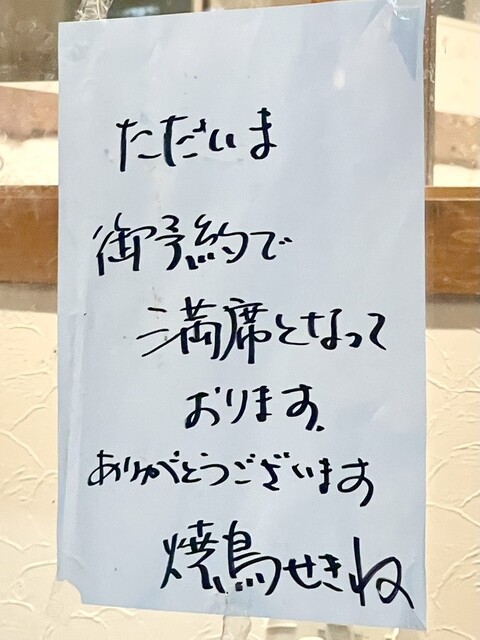 ただいま
御予約で
満席となって
おります。
ありがとうございます
焼鳥せきね